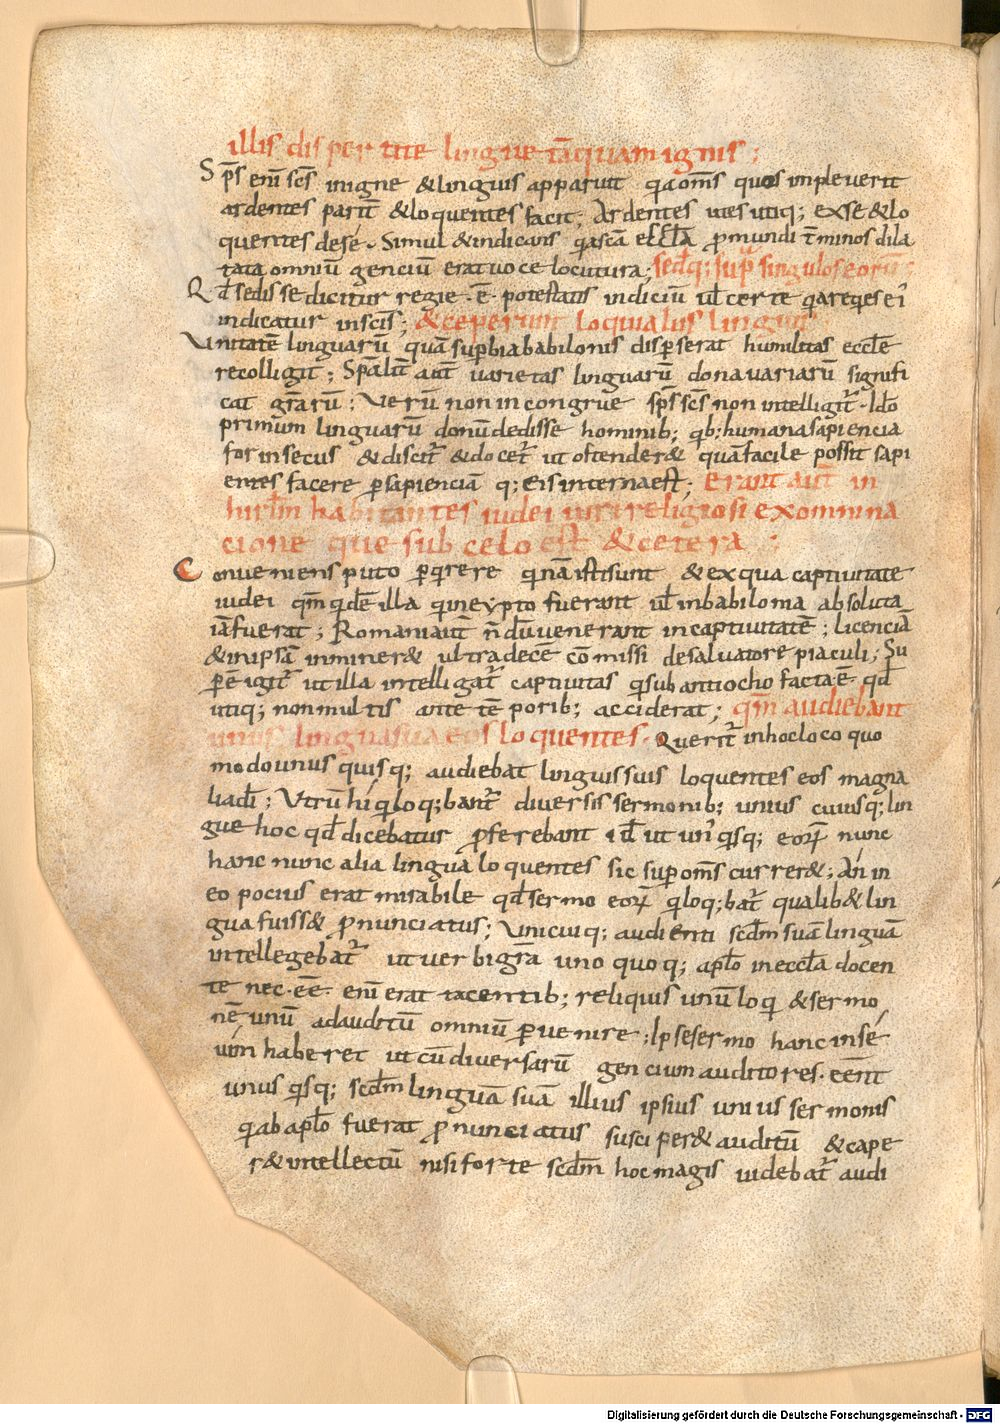 illis dispertite lingue tāquam ignis;
Sp̄s enī sc̄s inigne &linguis apparuit q̄a om̄s quos inpleverit
ardentes parit̄ &loquentes facit; Ardentes utes utiq; exse &lo
quentes dese. Simul &indicans q̄a scā eccl̄a p̄ mundi t̄minos dila
tata omniū genciū erat voce locutura; sedq; sup̄ singulos eorū
Qd̄ sedisse dicitur regie · ē · potestatis indiciū ul̄ certe q̄a reqes ei'
indicatur in scīs; &ceperunt loqui aliis linguis
Unitatē linguarū quā sup̄bia babilonis disp̄serat humilitas eccl̄e
recolligit; Sp̄alit̄ aut̄ varietas linguarū dona variarū signifi
cat gr̄arū; Verū non incongrue sp̄s sc̄s non intelligit̄ · Ido
primum linguarū donū dedisse hominib; qb; humana sapiencia
forinsecus &discit̄ &docet̄ ut ostender& quā facile possit sapi
entes facere p̄ sapienciā q; eis interna est; erant aut̄ in
hirl̄m habitantes iudei viri religiosi ex omni na
cione que sub celo est &cetera;
Conveniens puto p̄qrere qinā isti sunt &ex qua captivitate
iudei qm̄ qidē illa qi in eypto fuerant ul̄ in babilonia absoluta
iā fuerat; Romani aut̄ n̄dū venerant in captivitatē; licenciā
&in ipsā inminer& ultra decē comissi de salvatore piaculi; Su
p̄ ē igit̄ ut illa intelligat̄ captivitas q̄ sub antiocho facta ē · qd̄
utiq; non multis ante tēporib; acciderat; qm̄ audiebant
unus lingua sua eos loquentes. Querit̄ in hoc loco quo
modo unus quisq; audiebat linguis suis loquentes eos magna
lia dī; Utrū hi qi loq;bant̄ diversis sermonib; unius cuiusq; lin
gue hoc qd̄ dicebatur p̄ferebant id̄ ut un' qsq; eorū nunc
hanc nunc alia lingua loquentes sic sup̄ om̄s currer&; An in
eo pocius erat mirabile qd̄ sermo eorū qi loq;bat̄ qualib& lin
gua fuiss& p̄nunciatus; Unicuiq; audienti scd̄m suā linguā
intellegebat̄ ut verbi grā uno quoq; aplo in eccl̄a docen
te nec · ēē · enī erat tacentib; reliquis unū loqi &sermo
nē unū ad auditū omniū p̄venire; Ipse sermo hanc in se
vim haberet ut cū diversarū gencium auditores · eēnt
unus qsq; scd̄m linguā suā illius ipsius unius sermonis
q̄ ab aplo fuerat p̄nunciatus susciper& auditū &cape
r& intellectū nisi forte scd̄m hoc magis videbat̄ audi
Digitalisierung gefördert durch die Deutsche Forschungsgemeinschaft - DFG